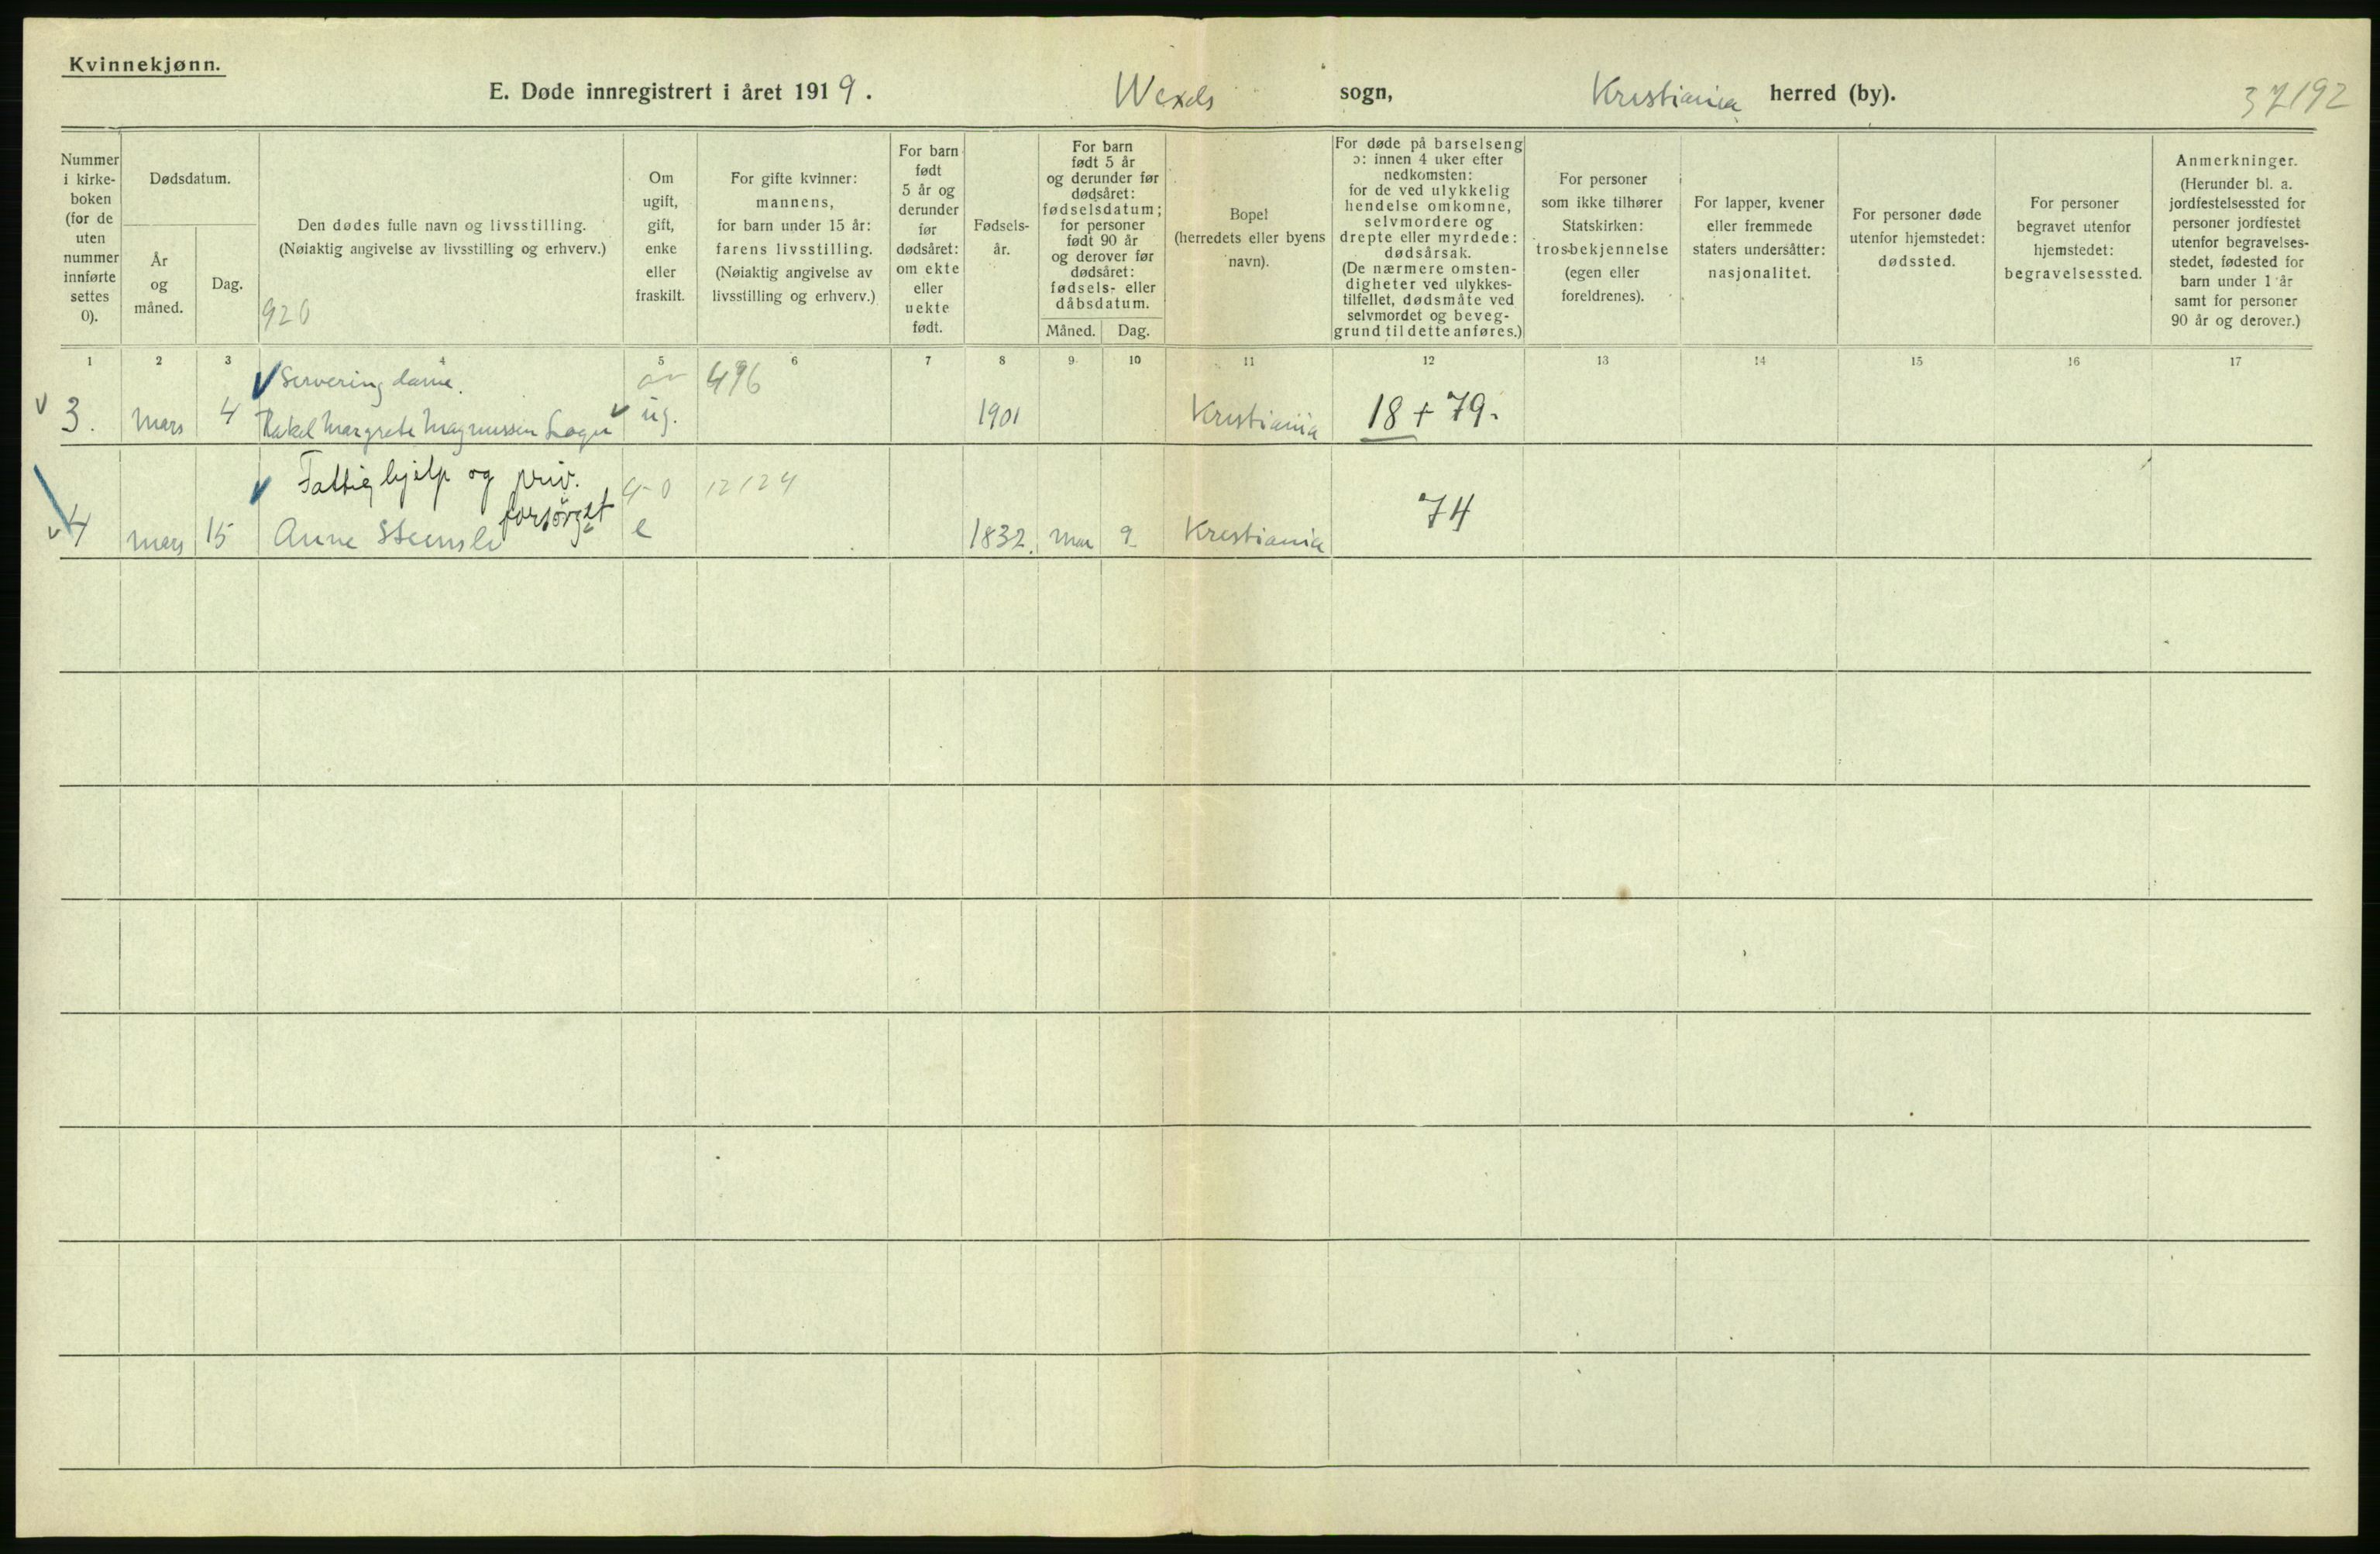 Kvinnekjønn.
E. Døde innregistrert i året 1919. Wexels sogn, Kristiania herred (by). 37192
Nummer i kirke-boken (for de uten nummer innførte settes 0).
Dødsdatum.
År og måned.
Dag.
Den dødes fulle navn og livsstilling.
(Nøiaktig angivelse av livsstilling og erhverv.)
920
Om ugift, gift, enke eller fraskilt.
For gifte kvinner: mannens, for barn under 15 år: farens livsstilling. (Nøiaktig angivelse av livsstilling og erhverv.)
For barn født 5 år og derunder før dødsåret: om ekte eller uekte født.
Fødsels-år.
For barn født 5 år og derunder før dødsåret: fødselsdatum; for personer født 90 år og derover før dødsåret: fødsels- eller dåbsdatum.
Måned. Dag.
Bopel (herredets eller byens navn).
For døde på barselseng ɔ: innen 4 uker efter nedkomsten: for de ved ulykkelig hendelse omkomne, selvmordere og drepte eller myrdede: dødsårsak. (De nærmere omsten-digheter ved ulykkes-tilfellet, dødsmåte ved selvmordet og beveg-grund til dette anføres.)
For personer som ikke tilhører Statskirken: trosbekjennelse (egen eller foreldrenes).
For lapper, kvener eller fremmede staters undersåtter: nasjonalitet.
For personer døde utenfor hjemstedet: dødssted.
For personer begravet utenfor hjemstedet: begravelsessted.
Anmerkninger. (Herunder bl. a. jordfestelsessted for personer jordfestet utenfor begravelses-stedet, fødested for barn under 1 år samt for personer 90 år og derover.)
1 2 3 4 5 6 7 8 9 10 11 12 13 14 15 16 17
Servering dame. 496
3. Mars 4 Rakel Margrete Magnussen ug. 1901 Kristiania 18 + 79.
Fattighjelp og priv. 4-0 12124
forsørget
4 Mars 15 Anne e 1832. Mar 9 Kristiania 74